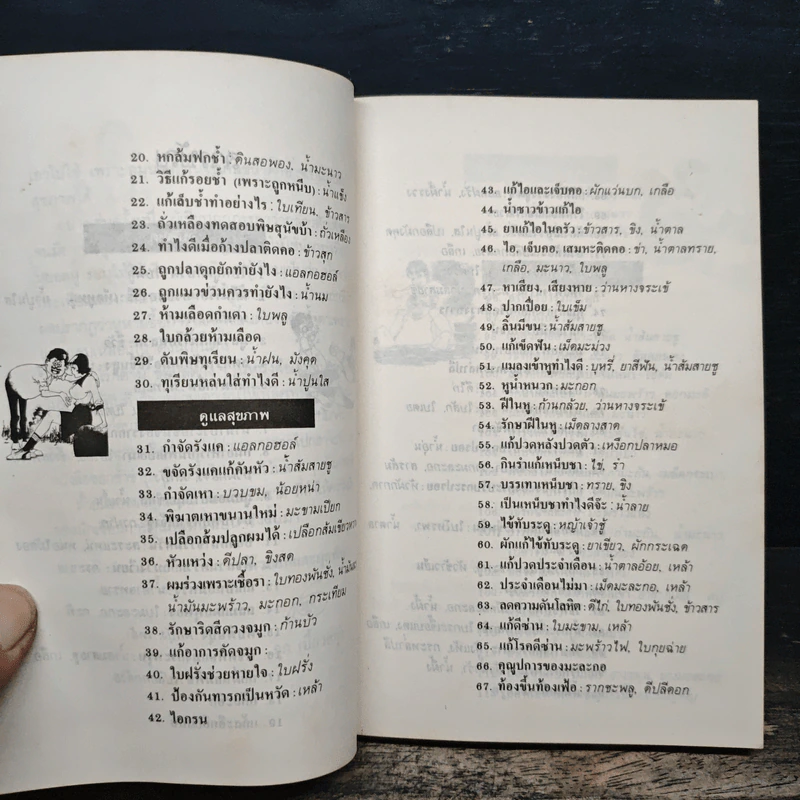 20. หกล้มฟกช้ำ : ดินสอพอง, น้ำมะนาว
21. วิธีแก้รอยช้ำ (เพราะถูกหนีบ) : น้ำแข็ง
22. แก้เล็บช้ำทำอย่างไร : ใบเทียน, ข้าวสาร
23. ถั่วเหลืองทดสอบพิษสุนัขบ้า : ถั่วเหลือง
24. ทำไงดีเมื่อก้างปลาติดคอ : ข้าวสุก
25. ถูกปลาดุกยักทำยังไง : แอลกอฮอล์
26. ถูกแมวข่วนควรทำยังไง : น้ำนม
27. ห้ามเลือดกำเดา : ใบพลู
28. ใบกล้วยห้ามเลือด
29. ดับพิษทุเรียน : น้ำฝน, มังคุด
30. ทุเรียนหล่นใส่ทำไงดี : น้ำปูนใส
ดูแลสุขภาพ
31. กำจัดรังแค : แอลกอฮอล์
32. ขจัดรังแคแก้คันหัว : น้ำส้มสายชู
33. กำจัดเหา : บวบขม, น้อยหน่า
34. พิฆาตเหาขนานใหม่ : มะขามเปียก
35. เปลือกส้มปลูกผมได้ : เปลือกส้มเขียวหวาน
36. หัวแหว่ง : ดีปลา, ขิงสด
37. ผมร่วงเพราะเชื้อรา : ใบทองพันชั่ง, น้ำมัน
น้ำมันมะพร้าว, มะกอก, กระเทียม
38. รักษาริดสีดวงจมูก : ก้านบัว
39. แก้อาการคัดจมูก :
40. ใบฝรั่งช่วยหายใจ : ใบฝรั่ง
41. ป้องกันทารกเป็นหวัด : เหล้า
42. ไอกรน
43. แก้ไอและเจ็บคอ : ผักแว่นบก, เกลือ
44. น้ำซาวข้าวแก้ไอ
45. ยาแก้ไอในครัว : ข้าวสาร, ขิง, น้ำตาล
46. ไอ, เจ็บคอ, เสมหะติดคอ : ข่า, น้ำตาลทราย,
เกลือ, มะนาว, ใบพลู
47. หาเสียง, เสียงหาย : ว่านหางจระเข้
48. ปากเปื่อย : ใบเข็ม
49. ลิ้นมีขน : น้ำส้มสายชู
50. แก้เข็ดฟัน : เม็ดมะม่วง
51. แมลงเข้าหูทำไงดี : บุหรี่, ยาสีฟัน, น้ำส้มสายชู
52. หูน้ำหนวก : มะกอก
53. ฝีในหู : ก้านกล้วย, ว่านหางจระเข้
54. รักษาฝีในหู : เม็ดลางสาด
55. แก้ปวดหลังปวดตัว : เหงือกปลาหมอ
56. กินรำแก้เหน็บชา : ไข่, รำ
57. บรรเทาเหน็บชา : ทราย, ขิง
58. เป็นเหน็บชาทำไงดีจ๊ะ : น้ำลาย
59. ไข้ทับระดู : หญ้าเจ้าชู้
60. ผักแก้ไข้ทับระดู : ยาเขียว, ผักกระเฉด
61. แก้ปวดประจำเดือน : น้ำตาลอ้อย, เหล้า
62. ประจำเดือนไม่มา : เม็ดมะละกอ, เหล้า
63. ลดความดันโลหิต : ตีไก่, ใบทองพันชั่ง, ข้าวสาร
64. แก้ดีซ่าน : ใบมะขาม, เหล้า
65. แก้โรคดีซ่าน : มะพร้าวไฟ, ใบกุยฉ่าย
66. คุณูปการของมะละกอ
67. ท้องขึ้นท้องเฟ้อ : รากชะพลู, ดีปลีดอก